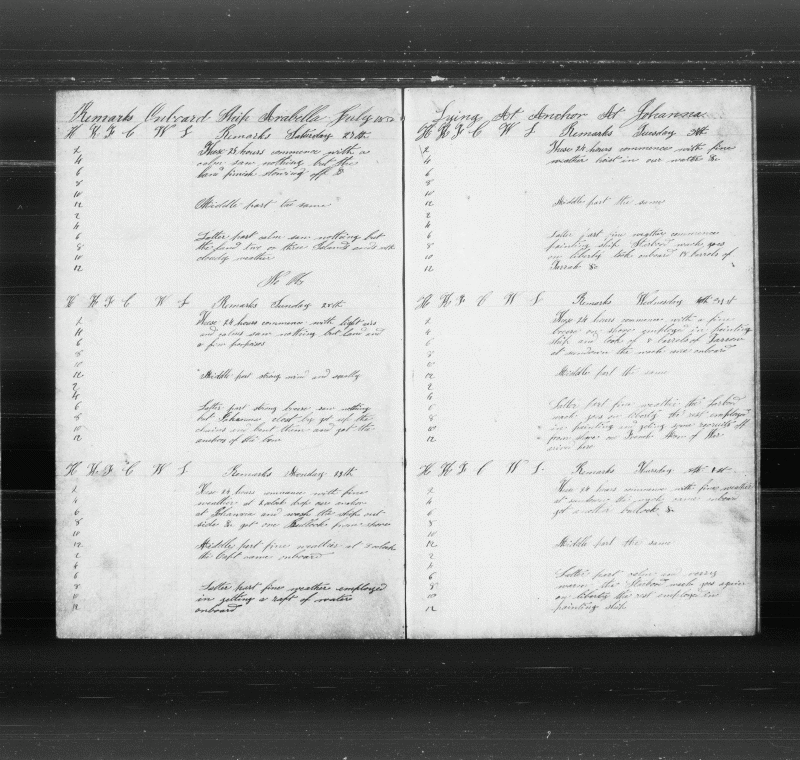 Remarks Onboard Ship Arabella July
H K F C W L Remarks Saturday 27th
2 These 24 hours commence with a
4 calm saw nothing but the
6 land finish stowing off
8
10
12 Middle part the same
2
4
6 Latter part calm saw nothing but
8 the land two or three Islands and with
10 cloudy weather
12
H K F C W L Remarks Sunday 28th
2 These 24 hours commence with light airs
4 and calms saw nothing but land and
6 a few porpoises
8
10
12 Middle part strong wind and squally
2
4
6 Latter part strong breeze saw nothing
8 but Johanna close by got up the
10 chains and bent them and got the
12 anchors off the bow
H K F C W L Remarks Monday 29th
2 These 24 hours commence with fine
4 weather at 2 oclock drop our anchor
6 at Johanna and wash the ship out
8 side &c got one Bullock from shore
10
12 Middle part fine weather at oclock
2 the Capt came onboard
4
6
8 Latter part fine weather employed
10 in getting a raft of water
12 onboard
Lying At Anchor At Johanna
H K F C W L Remarks Tuesday
2 These 24 hours commences with fine
4 weather hoist in our water &c
6
8
10
12 Middle part the same
2
4
6 Latter part fine weather commence
8 painting ship Starbord watch goes
10 on liberty took onboard barrels of
12
H K F C W L Remarks Wednesday 31st
2 These 24 hours commence with a fine
4 breeze off shore employed in painting
6 ship and took of 8 barrels of
8 at sundown the watch came onboard
10
12 Middle part the same
2
4
6 Latter part fine weather the Larbord
8 watch goes on liberty the rest employed
10 in painting and geting some recruits off
12 from shore
H K F C W L Remarks Thursday
2 These 24 hours commence with fine weather
4 at sundown the watch came onboard
6 got another bullock &c
8
10
12 Middle part the same
2
4
6 Latter part calm and very
8 warm the Starbord watch goes again
10 on liberty the rest employed in
12 painting ship